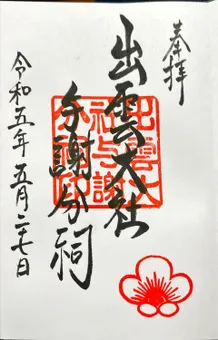 奉拝
出雲大社
与謝分祠
令和五年五月二十七日
出雲大
社与謝
分祠印